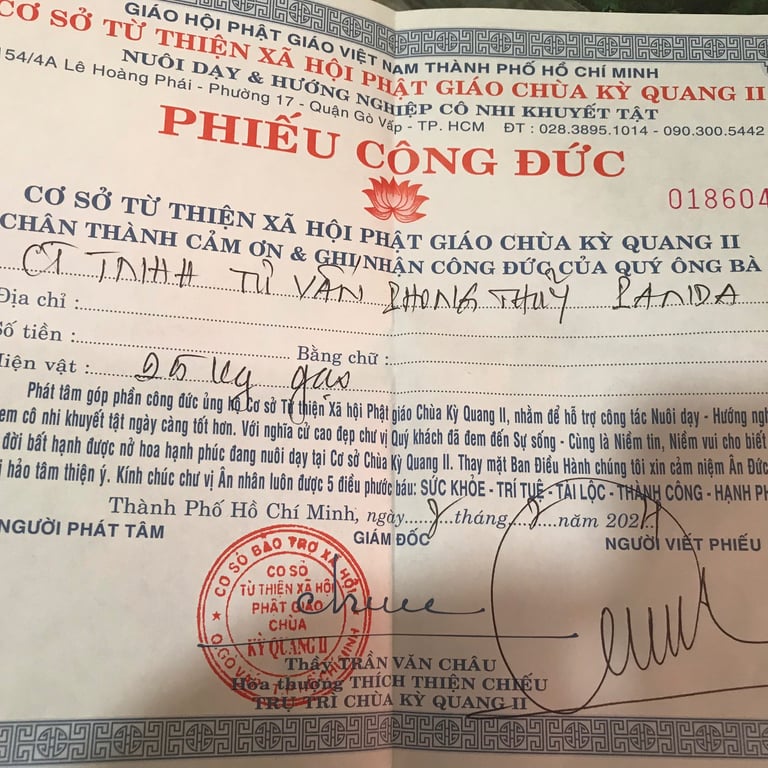 GIÁO HỘI PHẬT GIÁO VIỆT NAM THÀNH PHỐ HỒ CHÍ MINH
CƠ SỞ TỪ THIỆN XÃ HỘI PHẬT GIÁO CHÙA KỲ QUANG II
NUÔI DẠY & HƯỚNG NGHIỆP CÔ NHI KHUYẾT TẬT
154/4A Lê Hoàng Phái - Phường 17 - Quận Gò Vấp - TP. HCM ĐT : 028.3895.1014 - 090.300.5442
PHIẾU CÔNG ĐỨC
018604
CƠ SỞ TỪ THIỆN XÃ HỘI PHẬT GIÁO CHÙA KỲ QUANG II
CHÂN THÀNH CẢM ƠN & GHI NHẬN CÔNG ĐỨC CỦA QUÝ ÔNG BÀ
CT TNHH TƯ VẤN PHONG THUỶ PANDA
Địa chỉ :
Số tiền : Bằng chữ :
Hiện vật : 25 kg gạo
Phát tâm góp phần công đức ủng hộ Cơ sở Từ thiện Xã hội Phật giáo Chùa Kỳ Quang II, nhằm để hỗ trợ công tác Nuôi dạy - Hướng
em cô nhi khuyết tật ngày càng tốt hơn. Với nghĩa cử cao đẹp chư vị Quý khách đã đem đến Sự sống - Cùng là Niềm tin, Niềm vui cho biết
đời bất hạnh được nở hoa hạnh phúc đang nuôi dạy tại Cơ sở Chùa Kỳ Quang II. Thay mặt Ban Điều Hành chúng tôi xin cảm niệm Ân Đức
hảo tâm thiện ý. Kính chúc chư vị Ân nhân luôn được 5 điều phước báu: SỨC KHỎE - TRÍ TUỆ - TÀI LỘC - THÀNH CÔNG - HẠNH
Thành Phố Hồ Chí Minh, ngày tháng năm 202
NGƯỜI PHÁT TÂM GIÁM ĐỐC NGƯỜI VIẾT PHIẾU
CƠ SỞ BẢO TRỢ XÃ HỘI
CƠ SỞ
TỪ THIỆN XÃ HỘI
PHẬT GIÁO
CHÙA
KỲ QUANG II
Thầy TRẦN VĂN CHÂU
Hòa thượng THÍCH THIỆN CHIẾU
TRỤ TRÌ CHÙA KỲ QUANG II